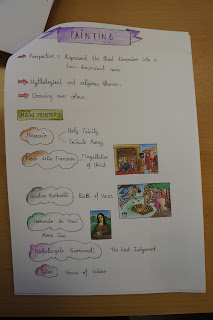 PAINTING
Perspective: Represent the third dimension into a
two-dimensional space.
Mythological and religious themes.
Drawing over colour.
MAIN PAINTERS
Masaccio
Holy Trinity
Tribute Money
Piero della Francesca
Flagellation
of Christ
Sandro Botticelli
Birth of Venus
Leonardo da Vinci
Mona Lisa
Michelangelo Buonarroti
The Last Judgement
Titian
Venus of Urbino